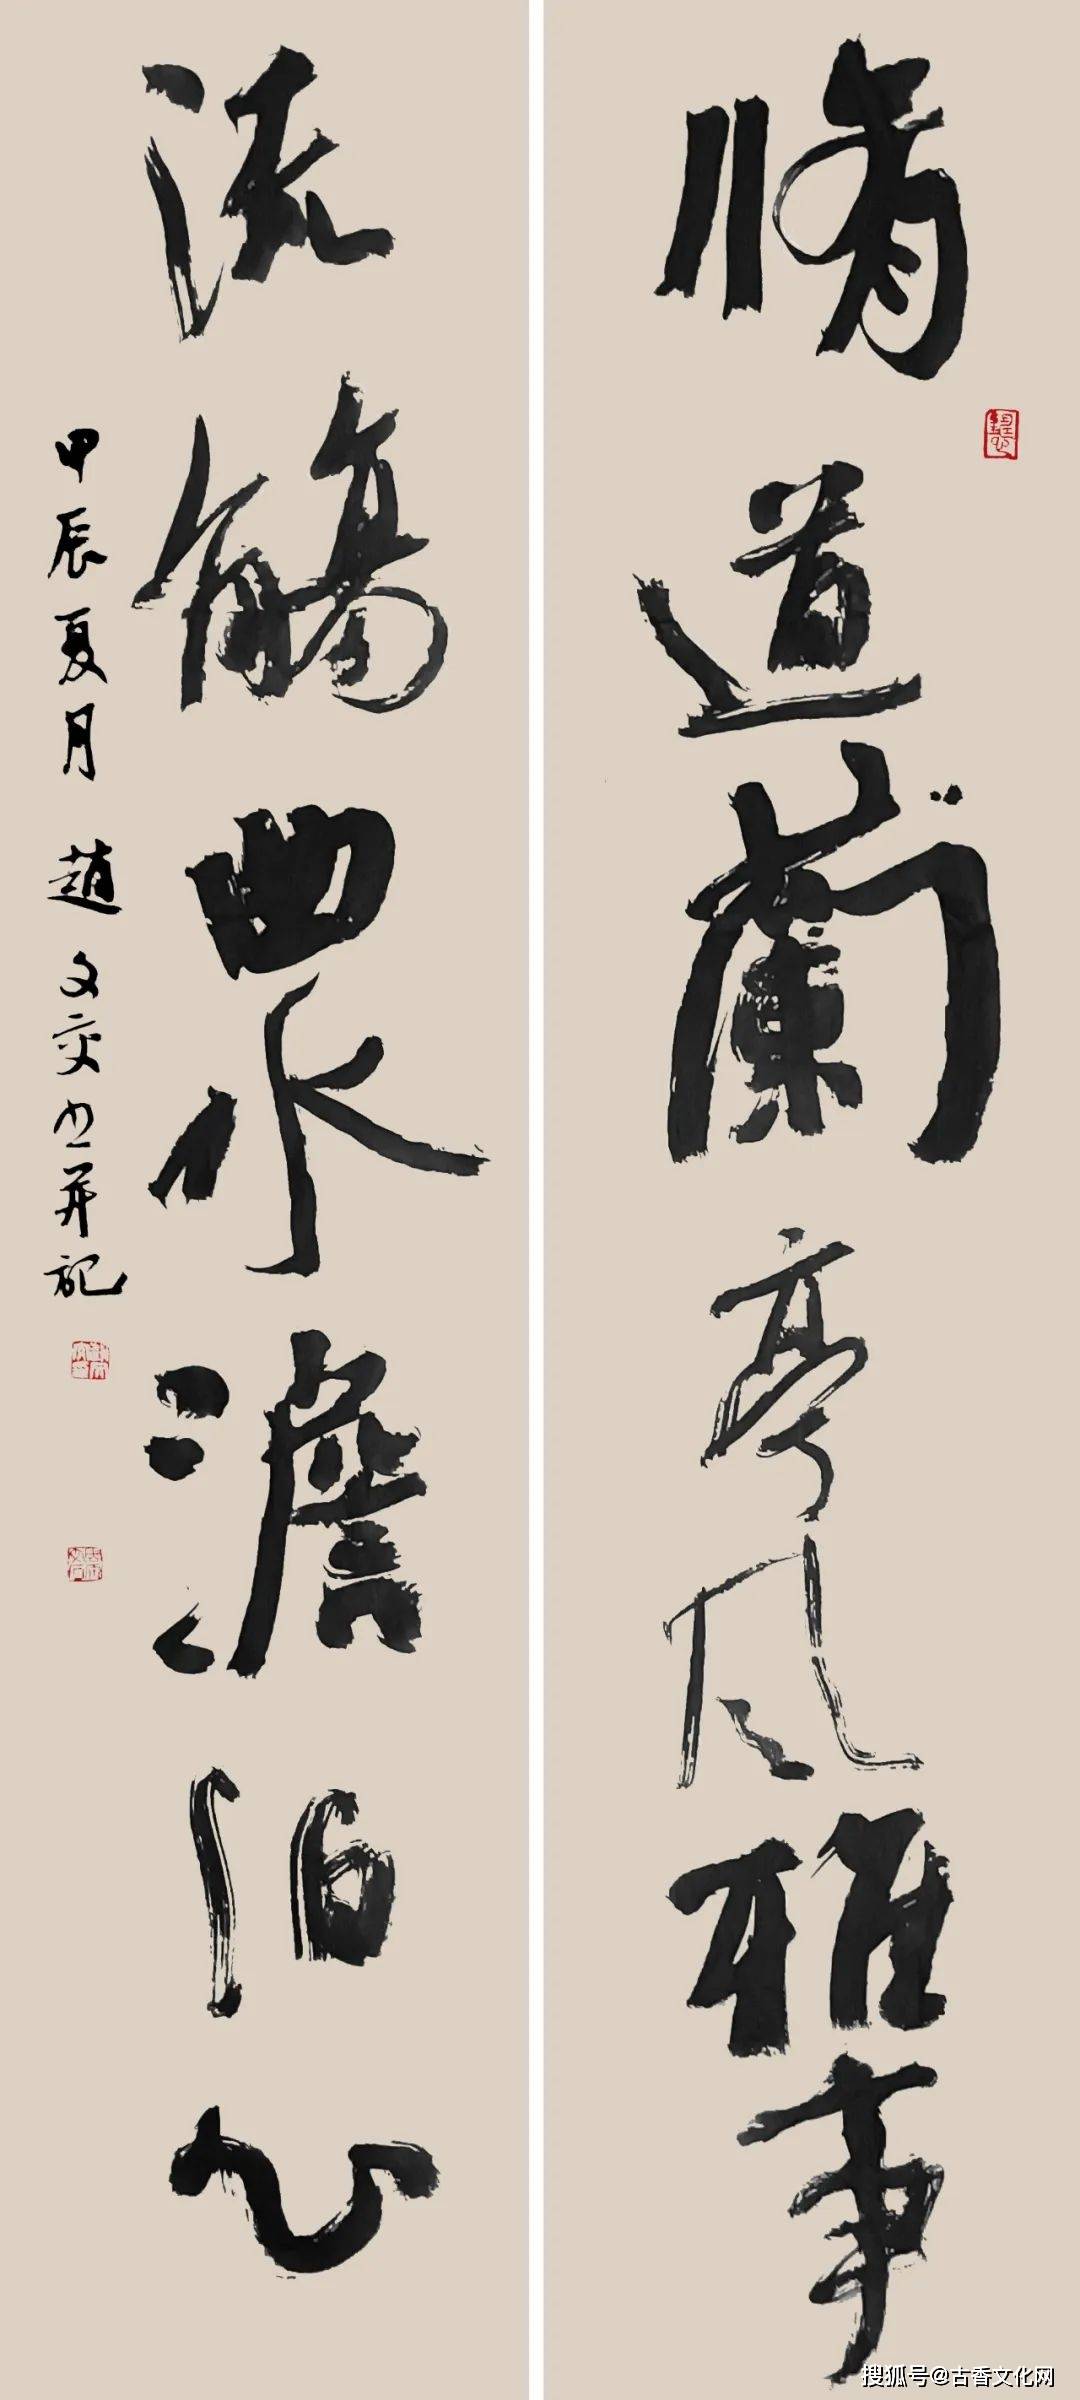 脩道蘭亭风雅事
流觴曲水澹泊心
甲辰夏月 趙文奕书并記
搜狐号@古香文化网